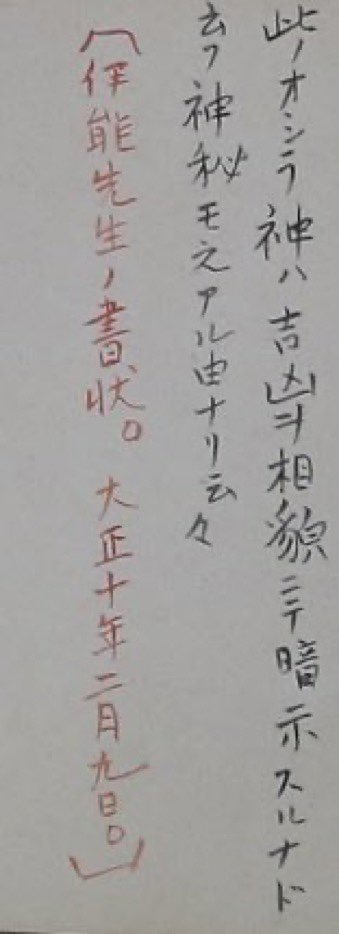 此ノオシラ神ハ吉凶ヲ相貌ニテ暗示スルナド
云フ神秘モ之アル由ナリ云々
(伊能先生ノ書状。大正十年二月九日。)